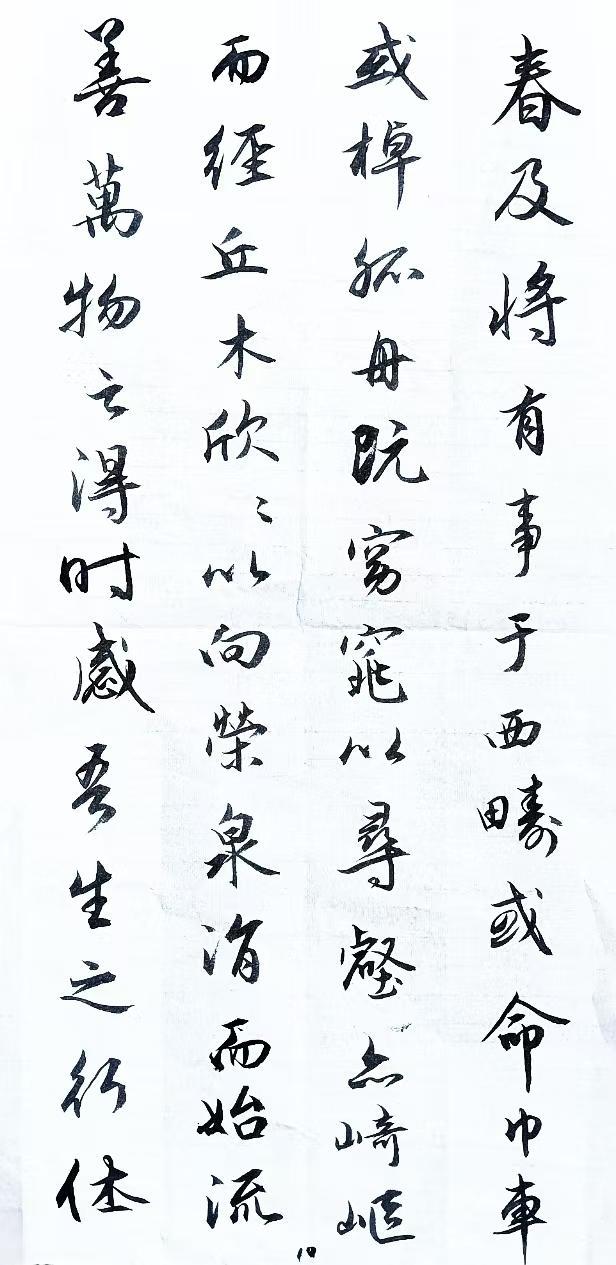 春及将有事于西畴或命巾車
或棹孤舟既窈窕以尋壑亦崎嶇
而經丘木欣〻以向榮泉涓而始流
善萬物之得时感吾生之行休
10